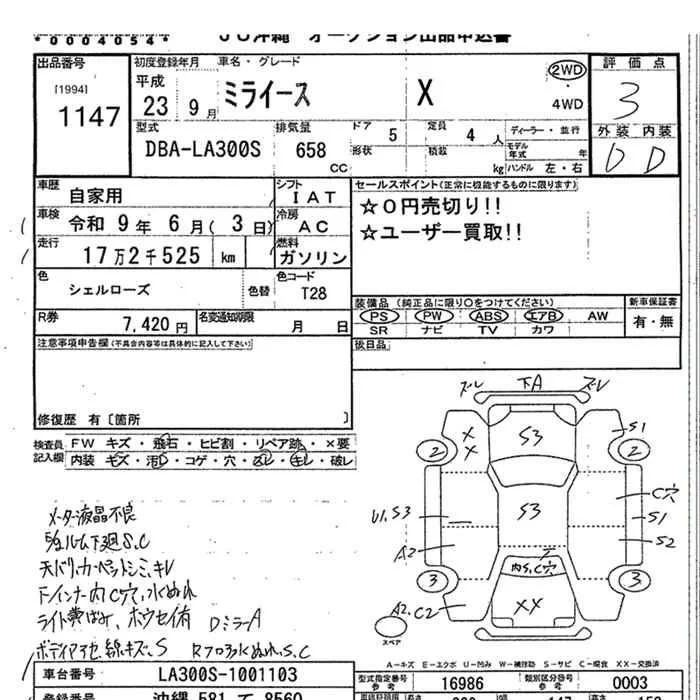 *0004054* JU沖縄 オークション出品申込書
出品番号 初度登録年月 車名・グレード 評価点
[1994] 1147
平成 23 9月 ミライース X 2WD 4WD 3
外装 内装
D D
型式 排気量 ドア 5 定員 4人 ディーラー・並行
DBA-LA300S 658 CC 形状 積載 kg モデル年式 年
ハンドル 左・右
車歴 自家用 シフト IAT
セールスポイント(正常に機能するものに限ります)
車検 令和 9年 6月(3日) 冷房 AC
☆0円売切り!!
走行 17万2千525 km 燃料 ガソリン
☆ユーザー買取!!
色 シェルローズ 色替 色コード T28
装備品 (純正品に限り○をつけてください) 新車保証書
R券 7,420円 名変通知期限 月 日
PS PW ABS エアB AW 有・無
SR ナビ TV カワ
注意事項申告欄(不具合内容等は具体的に記入して下さい)
後日品
修復歴 有〔箇所 〕
検査員記入欄 FW キズ・飛石・ヒビ割・リペア跡・×要
内装 キズ・汚レ・コゲ・穴・スレ・キレ・破レ
メーター液晶不良
ルーム下廻S.C
天バリ.カーペットシミ.キレ
下インナー内C穴.水ぬれ
ホウセイ有 DミラーA
線キズ.S Rフロア水ぬれ.S.C
ズレ 下A ズレ
X X S3 S1
2 2
U1.S3 S3 C穴
S1
A2 S2
3 内S.C穴 3
A2.C2 XX
スペア
A-キズ E-エクボ U-凹み W-補修跡 S-サビ C-腐食 XX-交換済
車台番号 LA300S-1001103
型式指定番号 参考 16986 類別区分番号 参考 0003
登録番号 沖縄 581 て 8560